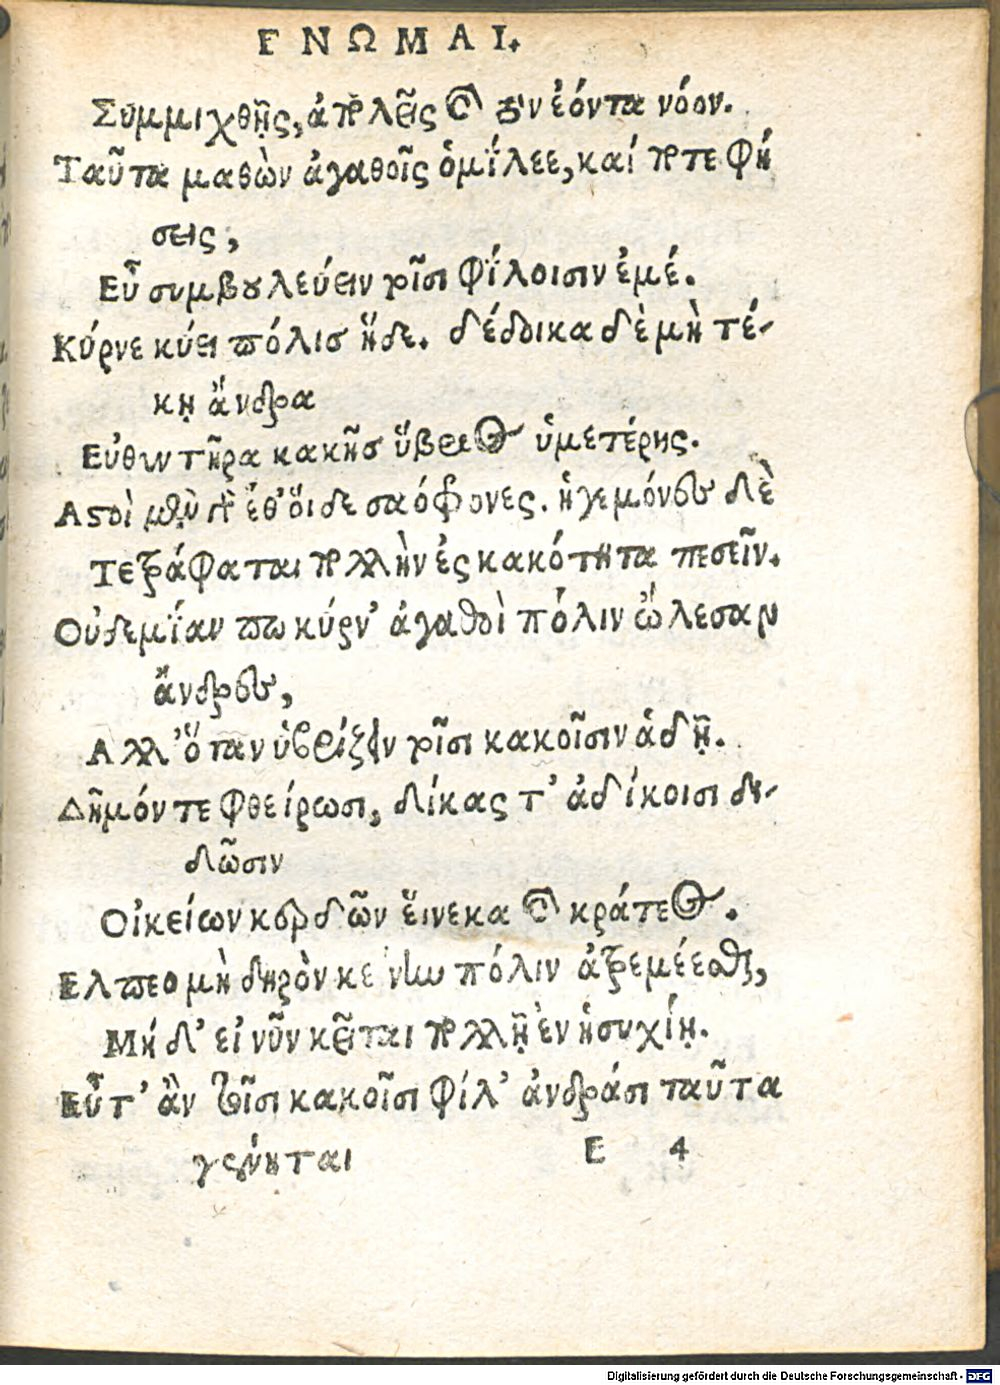 ΓΝΩΜΑΙ.
Συμμιχθῇς, ἀπολεῖς καὶ τὸν ἐόντα νόον.
Ταῦτα μαθὼν ἀγαθοῖς ὁμίλεε, καί ποτε φή
σεις,
Εὖ συμβουλεύειν τοῖσι φίλοισιν ἐμέ.
Κύρνε κύει πόλισ ἥδε. δέδοικα δὲ μὴ τέ-
κῃ ἄνδρα
Εὐθυντῆρα κακῆσ ὕβρεος ὑμετέρης.
Αστοὶ μὲν γὰρ ἔθ' οἵδε σαόφρονες. ἡγεμόνες δὲ
Τετράφαται πολλὴν ἐς κακότητα πεσεῖν.
Οὐδεμίαν πω κύρν' ἀγαθοὶ πόλιν ὤλεσαν
ἄνδρες,
Αλλ' ὅταν ὑβρίζειν τοῖσι κακοῖσιν ἁδῇ.
Δῆμόν τε φθείρωσι, δίκας τ' ἀδίκοισι δι-
δῶσιν
Οἰκείων κερδῶν εἵνεκα καὶ κράτεος.
Ελπεο μὴ δηρὸν κείνην πόλιν ἀτρεμέεσθαι,
Μή δ' εἰ νῦν κεῖται πολλῇ ἐν ἡσυχίῃ.
Εὖτ' ἂν τοῖσι κακοῖσι φίλ' ἀνδράσι ταῦτα
γένηται E 4
Digitalisierung gefördert durch die Deutsche Forschungsgemeinschaft - DFG